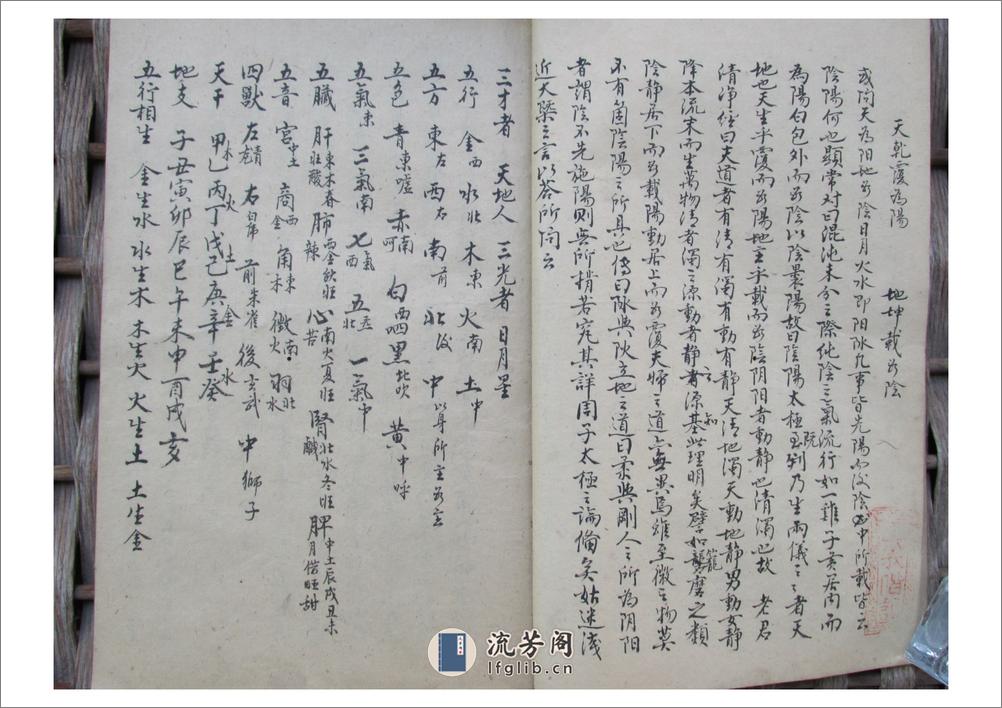 天乾覆為陽 地坤載為陰
或問天為陽地為陰日月火水即陽陰凡事皆先陽而後陰 中所載皆云
陰陽何也顯常對曰混沌未分之際純陰之氣流行如一雞子黃居內而
為陽白包外而為陰以陰裹陽故曰陰陽太極既判乃生兩儀之者天
地也天生乎覆而為陽地主乎載而為陰陰陽者動靜也清濁也故 老君
清净經曰夫道者有清有濁有動有静天清地濁天動地静男動女静
降本流末而生萬物清者濁之源動者静之基 此理明矣譬如籠磨之類
陰静居下而為載陽動居上而為覆夫婦之道亦無異焉雖至微之物莫
不有箇陰陽之所具也傳曰 立地之道曰柔與剛人之所為陰陽
者謂陰不先施陽則無所 若究其詳周子太極之論備矣姑述淺
近大槩之言以答所問云
三才者 天地人 三光者 日月星
五行 金西 水北 木東 火南 土中
五方 東左 西右 南前 北後 中以身所主為主
五色 青東噓 赤南呵 白西呬 黑北吹 黃中呼
五氣東 三氣南 七氣西 五氣北 一氣中
五臟 肝東木春旺酸 肺西金秋旺辣 心南火夏旺苦 腎北水冬旺鹹 脾中土辰戌丑未月偕旺甜
五音 宮中土 商西金 角東木 徵南火 羽北水
四獸 左青龍 右白虎 前朱雀 後玄武 中獅子
天干 甲乙木 丙丁火 戊己土 庚辛金 壬癸水
地支 子丑寅卯辰巳午未申酉戌亥
五行相生 金生水 水生木 木生火 火生土 土生金
流芳阁
lfglib.cn